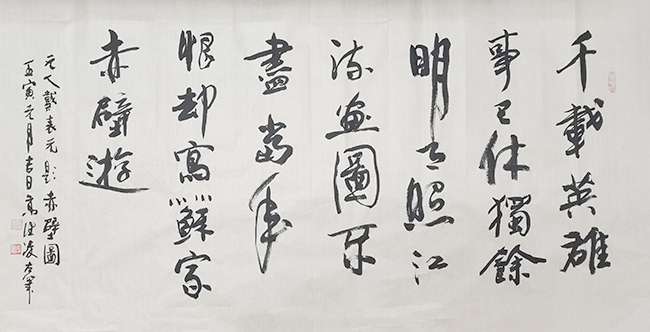 千載英雄
事已休獨餘
明月照江
流畫圖不
盡當年
恨却寫蘇家
赤壁遊
元人戴表元題赤壁圖
壬寅元月吉日高